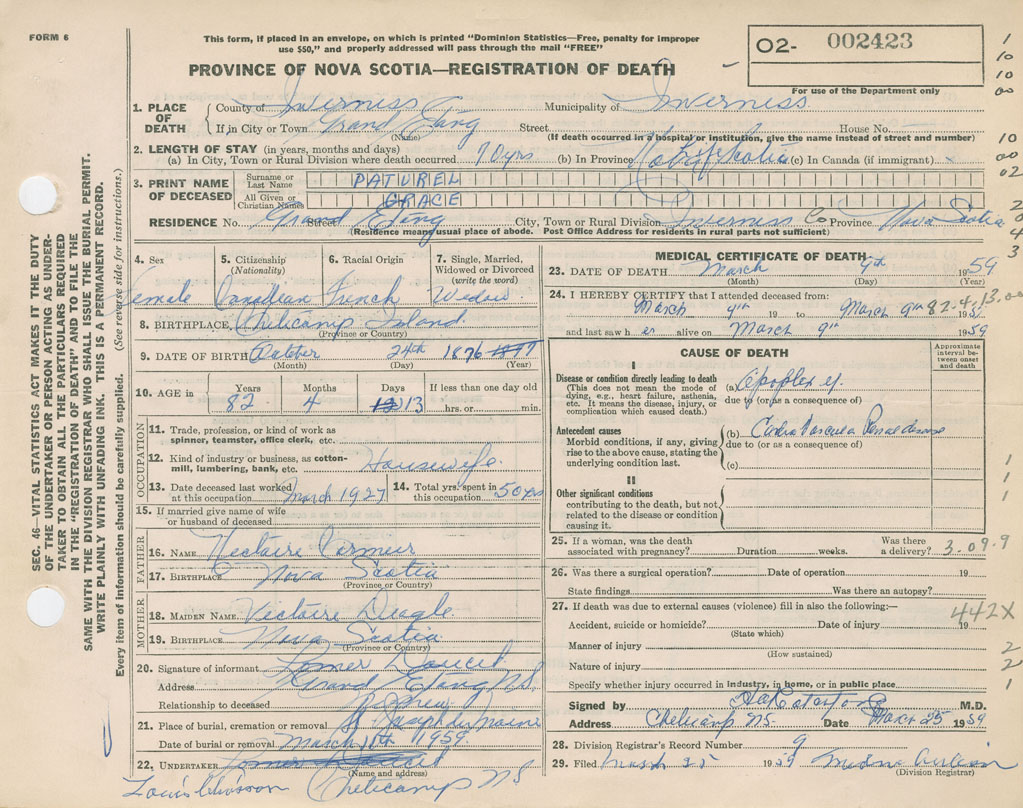 FORM 6
This form, if placed in an envelope, on which is printed "Dominion Statistics—Free, penalty for improper
use $50," and properly addressed will pass through the mail "FREE"
PROVINCE OF NOVA SCOTIA—REGISTRATION OF DEATH
O2- 002423
For use of the Department only
1
10
10
00
10
00
02
2
0
4
3
SEC. 46—VITAL STATISTICS ACT MAKES IT THE DUTY
OF THE UNDERTAKER OR PERSON ACTING AS UNDER-
TAKER TO OBTAIN ALL THE PARTICULARS REQUIRED
IN THE "REGISTRATION OF DEATH" AND TO FILE THE
SAME WITH THE DIVISION REGISTRAR WHO SHALL ISSUE THE BURIAL PERMIT.
WRITE PLAINLY WITH UNFADING INK. THIS IS A PERMANENT RECORD.
Every item of information should be carefully supplied. (See reverse side for instructions.)
1. PLACE OF DEATH
County of Inverness Municipality of Inverness
If in City or Town Grand Etang Street House No.
(Name) (If death occurred in a hospital or institution, give the name instead of street and number)
2. LENGTH OF STAY (in years, months and days)
(a) In City, Town or Rural Division where death occurred 70 yrs (b) In Province Nova Scotia (c) In Canada (if immigrant)
3. PRINT NAME OF DECEASED
Surname or Last Name PATUREL
All Given or Christian Names GRACE
RESIDENCE No. Grand Etang Street City, Town or Rural Division Inverness Co Province Nova Scotia
(Residence means usual place of abode. Post Office Address for residents in rural parts not sufficient)
4. Sex
emale
5. Citizenship (Nationality)
Canadian
6. Racial Origin
French
7. Single, Married, Widowed or Divorced (write the word)
Widow
8. BIRTHPLACE Cheticamp Island
(Province or Country)
9. DATE OF BIRTH October 24th 1876 1877
(Month) (Day) (Year)
10. AGE in
Years Months Days If less than one day old
82 4 13 hrs. or min.
OCCUPATION
11. Trade, profession, or kind of work as
spinner, teamster, office clerk, etc.
12. Kind of industry or business, as cotton-
mill, lumbering, bank, etc. Housewife
13. Date deceased last worked at this occupation March 1927
14. Total yrs. spent in this occupation 50 yrs
15. If married give name of wife
or husband of deceased
FATHER
16. NAME Nectaire Cormier
17. BIRTHPLACE Nova Scotia
(Province or Country)
MOTHER
18. MAIDEN NAME Victoire Deagle
19. BIRTHPLACE Nova Scotia
(Province or Country)
20. Signature of informant Lomer Doucet
Address Grand Etang N.S.
Relationship to deceased Nephew
21. Place of burial, cremation or removal St Joseph du Moine
Date of burial or removal March 11th 1959
22. UNDERTAKER Lomer Doucet
(Name and address)
Louis Chiasson Cheticamp N.S.
MEDICAL CERTIFICATE OF DEATH
23. DATE OF DEATH March 9th 1959
(Month) (Day) (Year)
24. I HEREBY CERTIFY that I attended deceased from:
March 4th 19 to March 9th 19 59
82.4.13.00
and last saw her alive on March 9th 1959
CAUSE OF DEATH
Approximate interval between onset and death
I
Disease or condition directly leading to death
(This does not mean the mode of
dying, e.g., heart failure, asthenia,
etc. It means the disease, injury, or
complication which caused death.)
(a) Apoplexy
due to (or as a consequence of)
Antecedent causes
Morbid conditions, if any, giving
rise to the above cause, stating the
underlying condition last.
(b) Cardio Vascular Renal disease
due to (or as a consequence of)
(c)
II
Other significant conditions
contributing to the death, but not
related to the disease or condition
causing it.
1
1
1
25. If a woman, was the death
associated with pregnancy? Duration weeks. Was there a delivery?
3.09.9
26. Was there a surgical operation? Date of operation 19
State findings Was there an autopsy?
27. If death was due to external causes (violence) fill in also the following:—
442X
Accident, suicide or homicide? Date of injury 19
(State which)
Manner of injury 2
(How sustained)
Nature of injury 2
Specify whether injury occurred in industry, in home, or in public place 1
Signed by M.D.
Address Cheticamp N.S. Date March 25 1959
28. Division Registrar's Record Number 9
29. Filed March 25 1959
(Division Registrar)